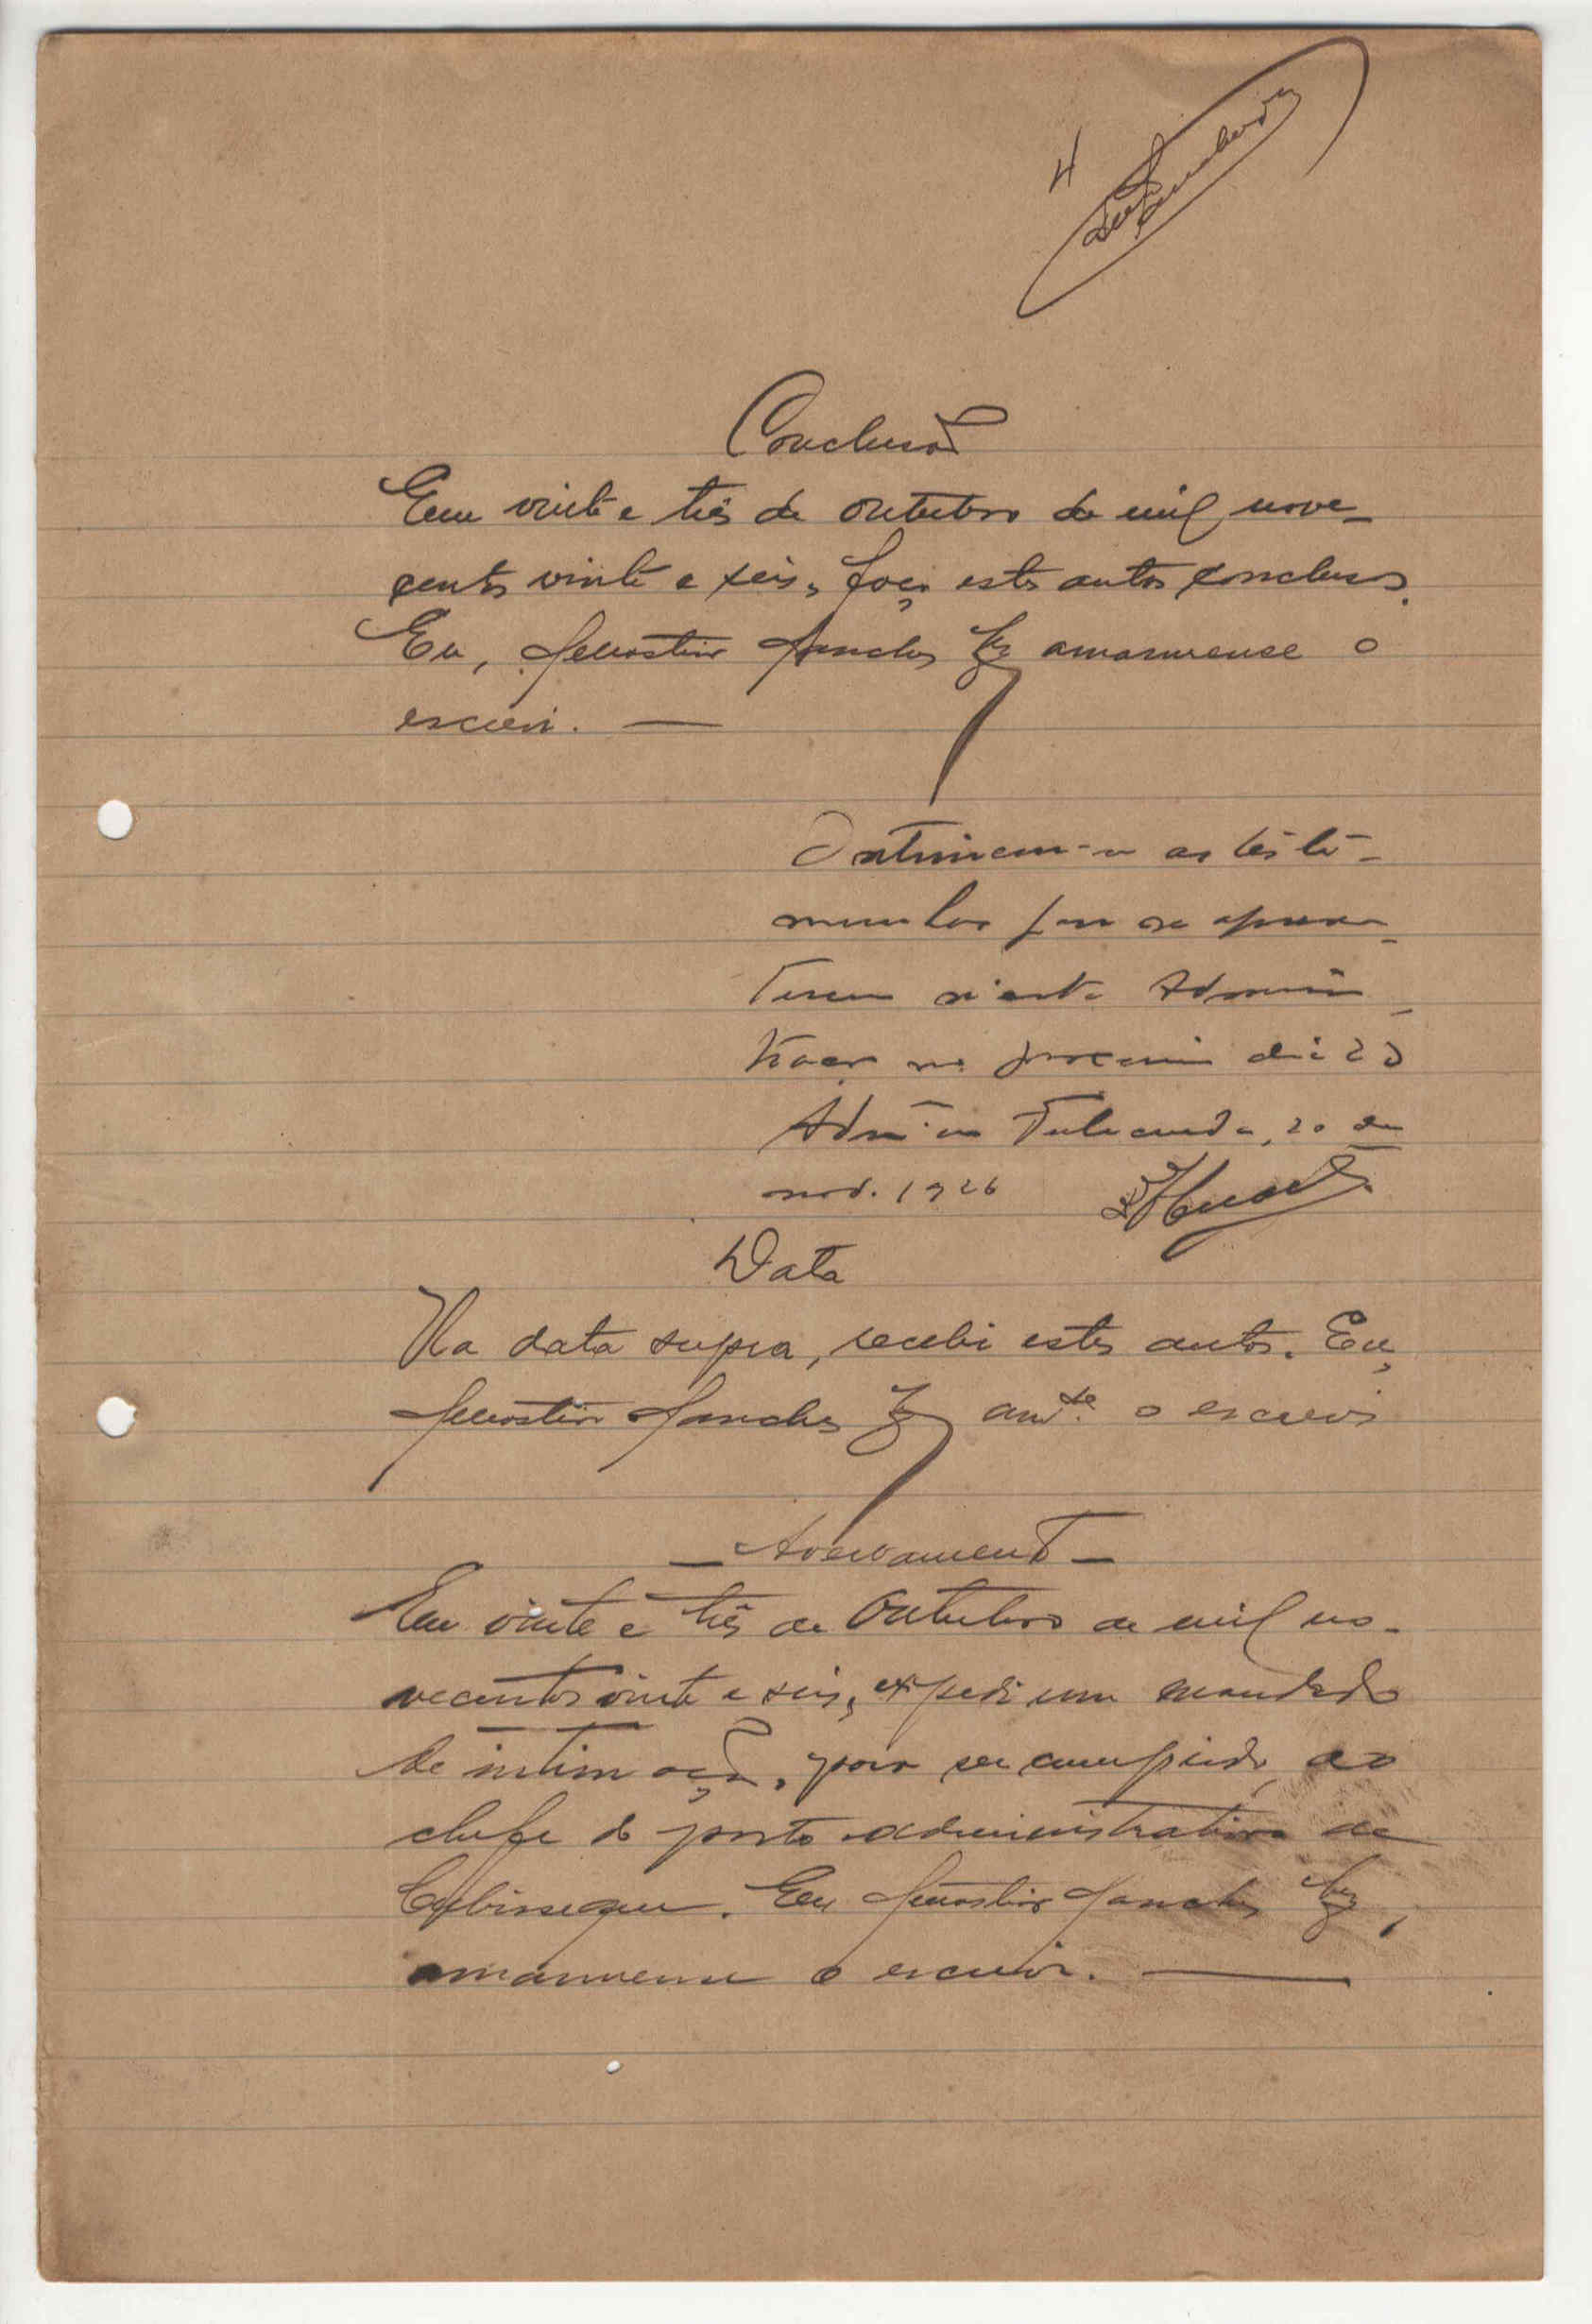 4
Conclusão
Em vinte e três de outubro de mil nove-
centos vinte e seis, faço estes autos conclusos.
Eu, Sanches amanuense o
escrevi. —
Intimem-se as teste-
munhas para se apresen-
tarem n'esta Adminis-
tração no proximo dia 23
Adm.ão 20 de
nov. 1926
Data
Na data supra, recebi estes autos. Eu,
Sanches am.se o escrevi
— Averbamento —
Em vinte e três de Outubro de mil no-
vecentos vinte e seis, expedi um mandado
de intimação, para ser cumprido, ao
chefe do posto administrativo de
Eu Sanches
amanuense o escrevi. —